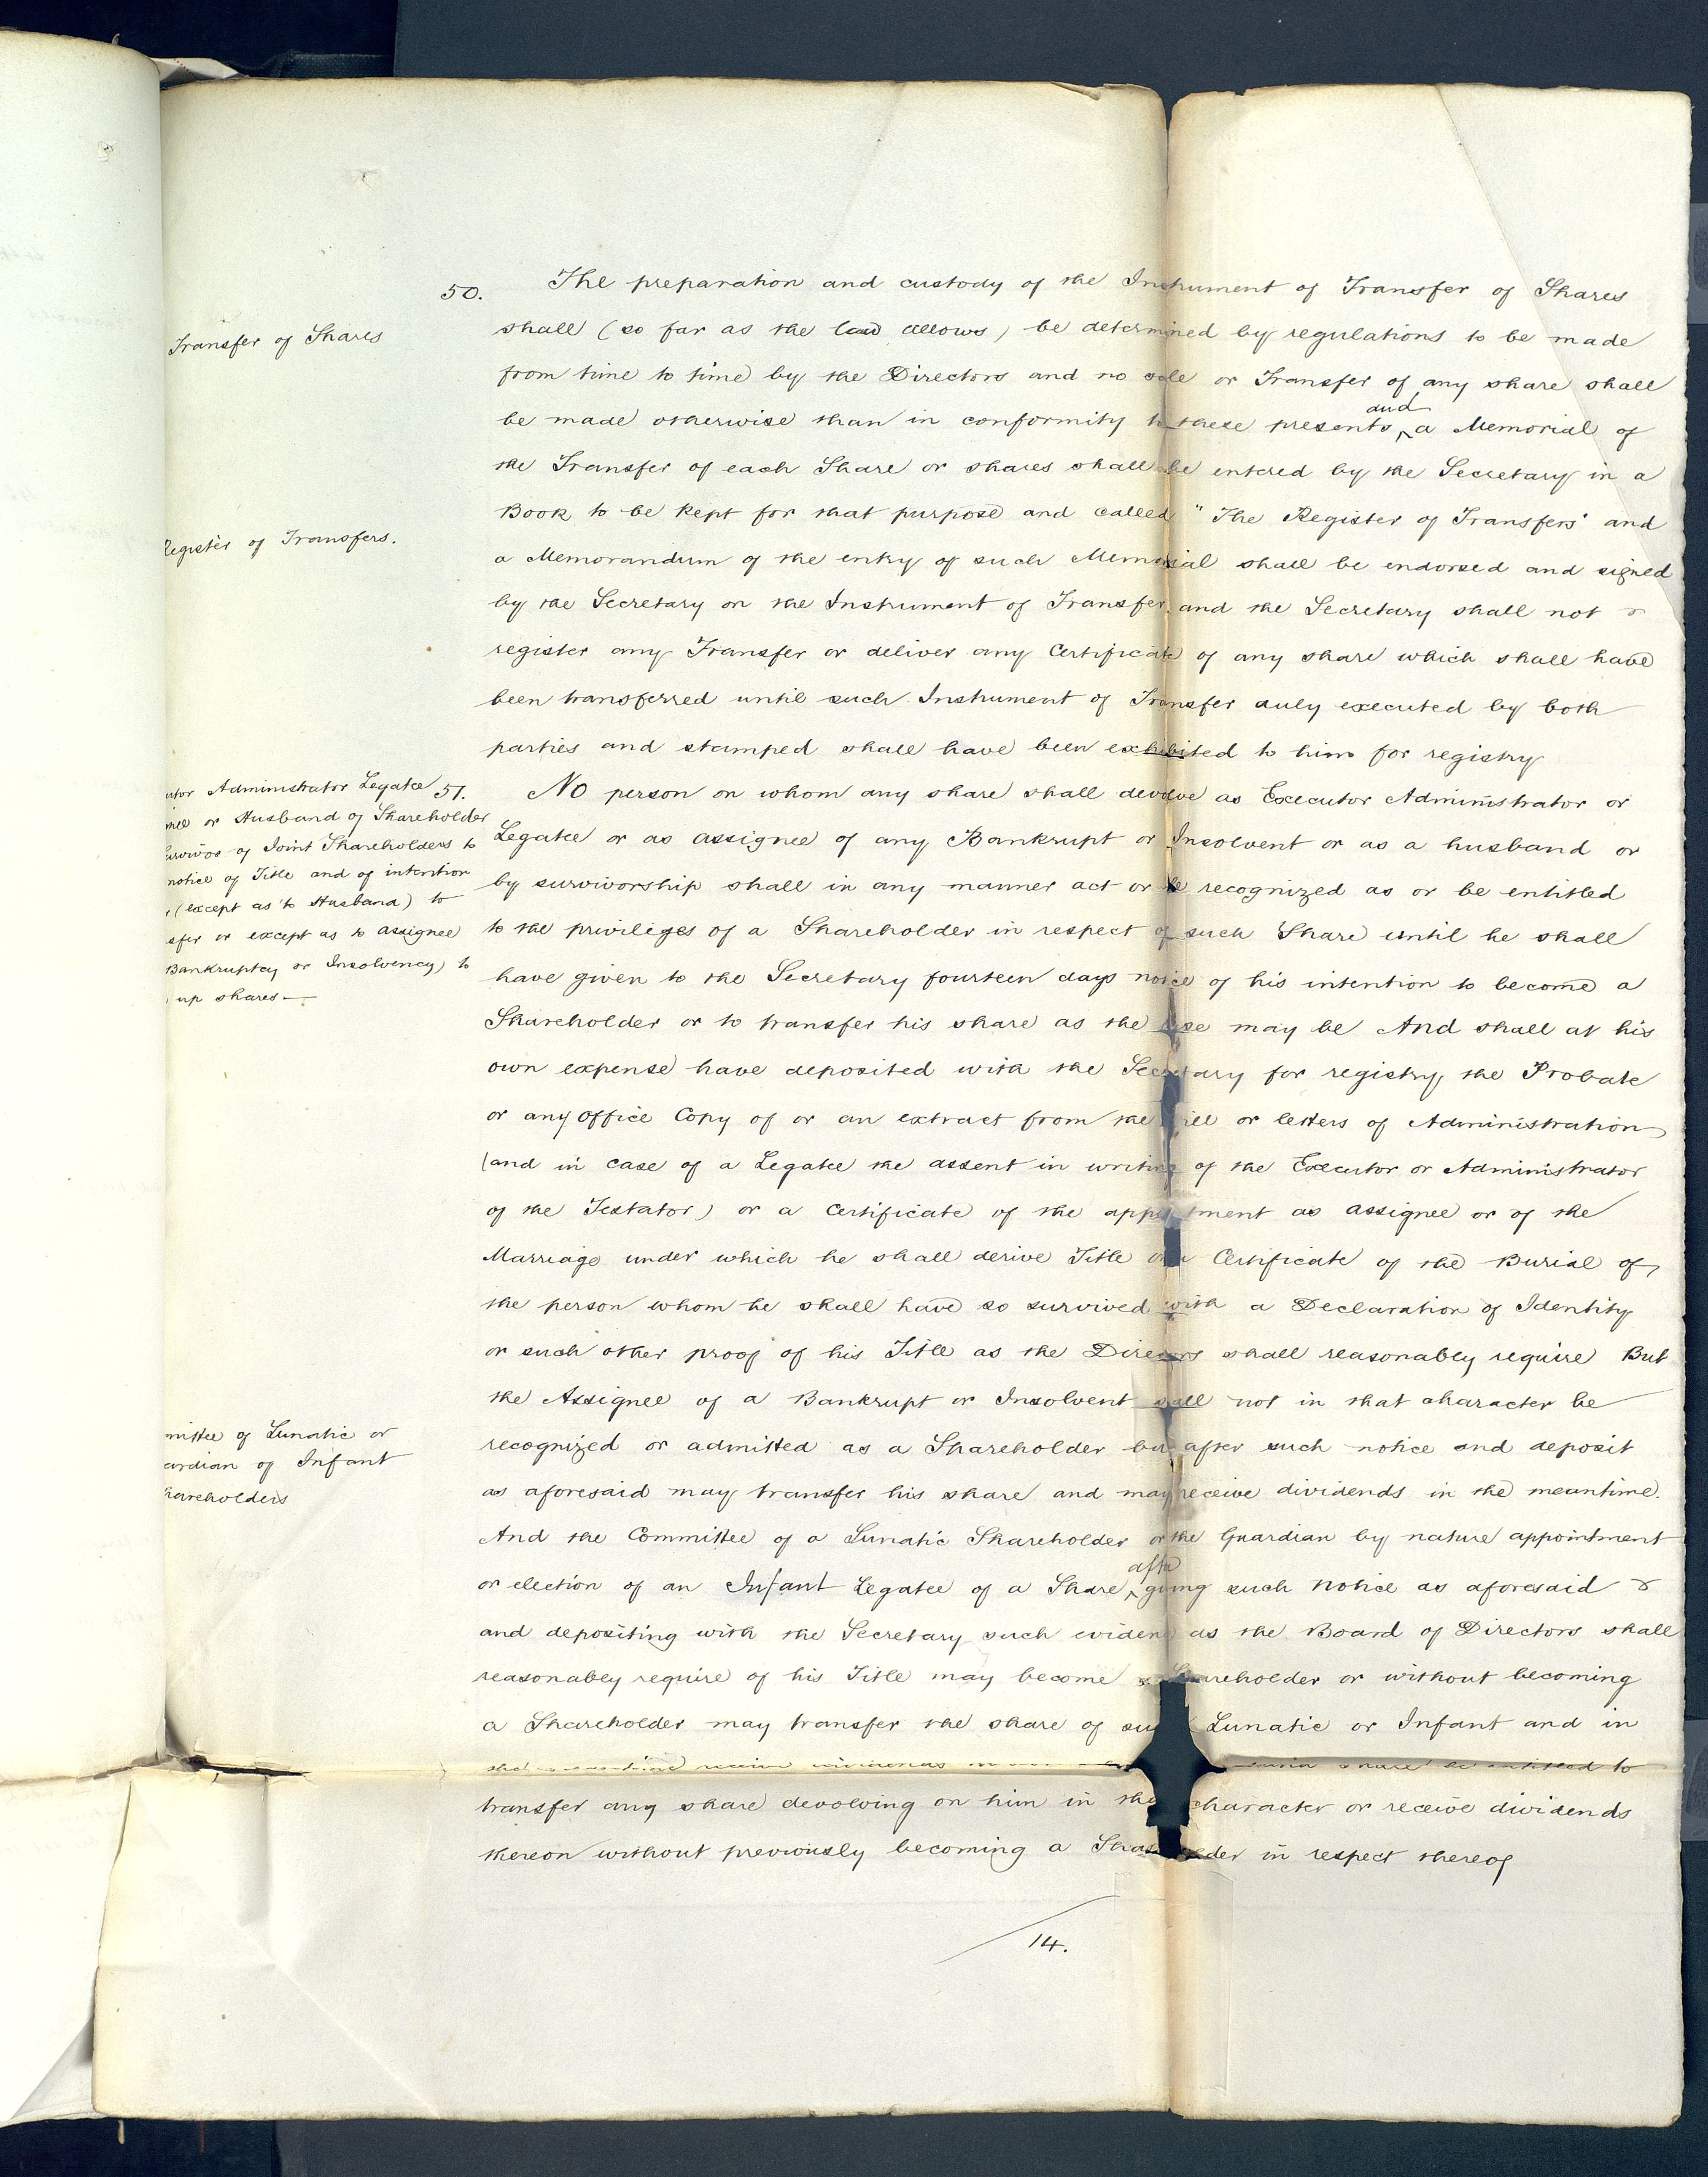 50. The preparation and custody of the Instrument of Transfer of Shares
Transfer of Shares
shall (so far as the law allows) be determined by regulations to be made
from time to time by the Directors and no sale or Transfer of any share shall
and
be made otherwise than in conformity to these presents ‸ a Memorial of
the Transfer of each Share or shares shall be entered by the Secretary in a
Book to be kept for that purpose and called "The Register of Transfers" and
Register of Transfers.
a Memorandum of the entry of such Memorial shall be endorsed and signed
by the Secretary on the Instrument of Transfer and the Secretary shall not
register any Transfer or deliver any Certificate of any share which shall have
been transferred until such Instrument of Transfer duly executed by both
parties and stamped shall have been exhibited to him for registry
utor Administrator Legatee
nee or Husband of Shareholder
urvivor of Joint Shareholders to
notice of Title and of intention
(except as to Husband) to
sfer or except as to assignee
Bankruptcy or Insolvency) to
up shares —
51. No person on whom any share shall devolve as Executor Administrator or
Legatee or as assignee of any Bankrupt or Insolvent or as a husband or
by survivorship shall in any manner act or be recognized as or be entitled
to the privileges of a Shareholder in respect of such Share until he shall
have given to the Secretary fourteen days notice of his intention to become a
Shareholder or to transfer his share as the case may be And shall at his
own expense have deposited with the Secretary for registry the Probate
or any office Copy of or an extract from the Will or letters of Administration
(and in case of a Legatee the assent in writing of the Executor or Administrator
of the Testator) or a Certificate of the appointment as assignee or of the
Marriage under which he shall derive Title or a Certificate of the Burial of
the person whom he shall have so survived with a Declaration of Identity
or such other proof of his Title as the Directors shall reasonably require But
the Assignee of a Bankrupt or Insolvent shall not in that character be
mittee of Lunatic or
ardian of Infant
hareholders
recognized or admitted as a Shareholder but after such notice and deposit
as aforesaid may transfer his share and may receive dividends in the meantime.
And the Committee of a Lunatic Shareholder or the Guardian by nature appointment
after
or election of an Infant Legatee of a Share ‸ giving such notice as aforesaid
and depositing with the Secretary such evidence as the Board of Directors shall
reasonably require of his Title may become a Shareholder or without becoming
a Shareholder may transfer the share of such Lunatic or Infant and in
the meantime receive dividends be entitled to
transfer any share devolving on him in that character or receive dividends
thereon without previously becoming a Shareholder in respect thereof
14.